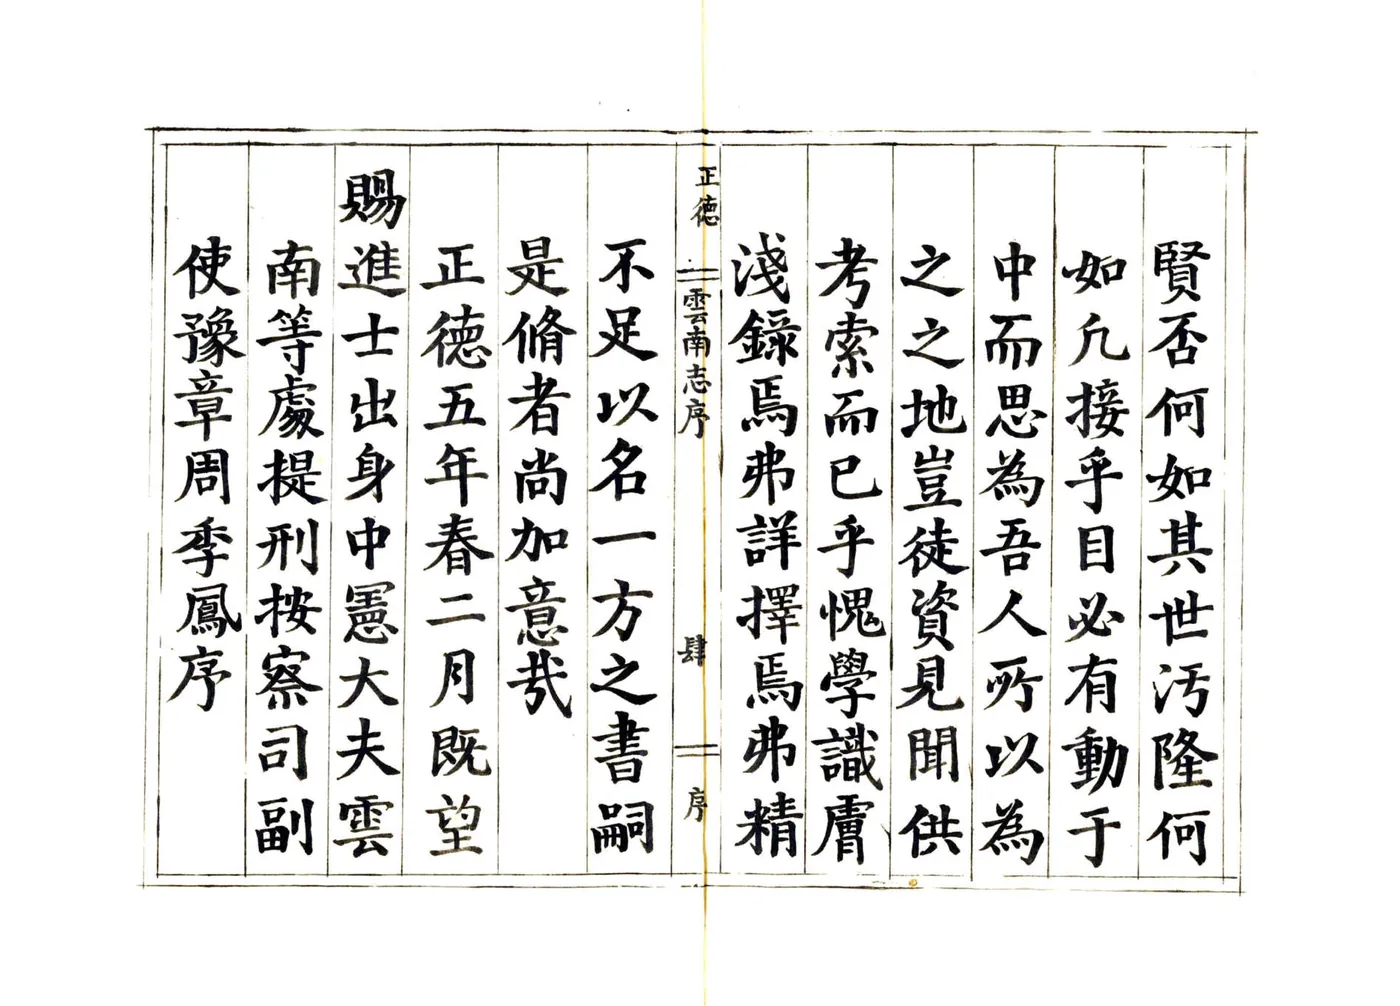 賢否何如其世汚隆何
如凢接乎目必有動于
中而思為吾人所以為
之之地豈徒資見聞供
考索而已乎愧學識膚
淺錄焉弗詳擇焉弗精
正德
雲南志序
肆
序
不足以名一方之書嗣
是脩者尚加意㢤
正德五年春二月既望
賜進士出身中憲大夫雲
南等處提刑按察司副
使豫章周季鳳序